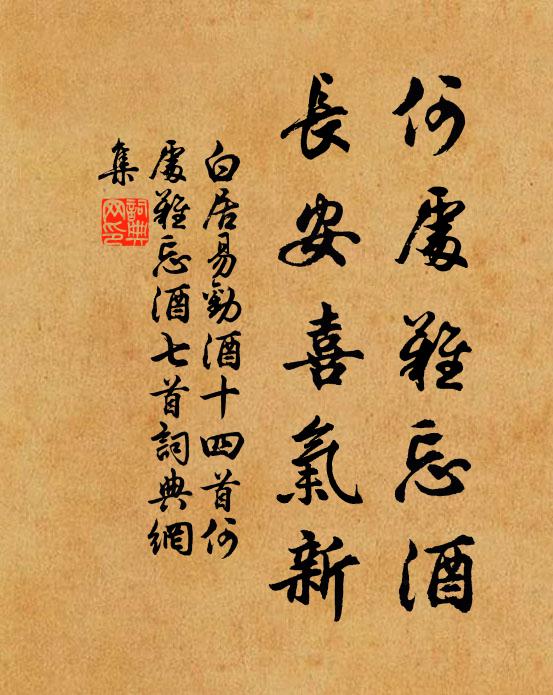 何處難忘酒
長安喜氣新
白居易勸酒十四首何
處難忘酒七首詞典網
集
詞典
網印